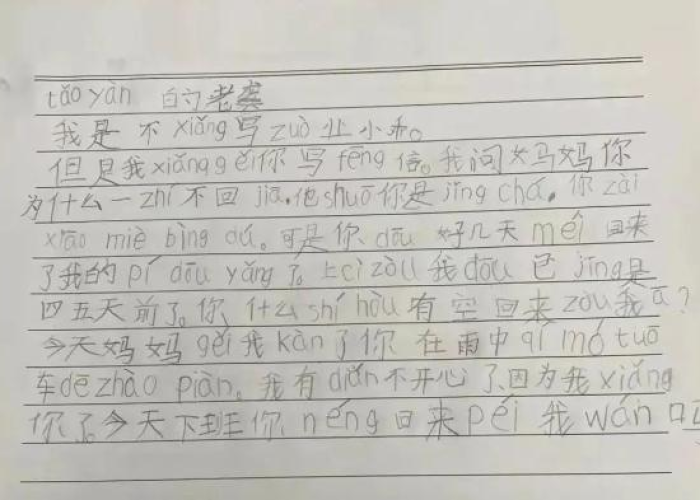 tǎo yàn 的老婆
我是不 xiǎng 写 zuò 业小布。
但是我 xiǎng gěi 你写 fēng 信。我问妈妈你
为什么一 zhí 不回 jiā，他 shuō 你是 jǐng chá，你 zài
xiāo miè bìng dú。可是你 dōu 好几天 méi 回来
了我的 pí dōu yǎng 了。上 cì zòu 我 dōu 已 jīng 是
四五天前了。你什么 shí hòu 有空回来 zòu 我 ā？
今天妈妈 gěi 我 kàn 了你在雨中 qí mó tuō
车 dē zhào piàn。我有 diǎn 不开心了，因为我 xiǎng
你了。今天下班你 néng 回来 péi 我 wán 吗